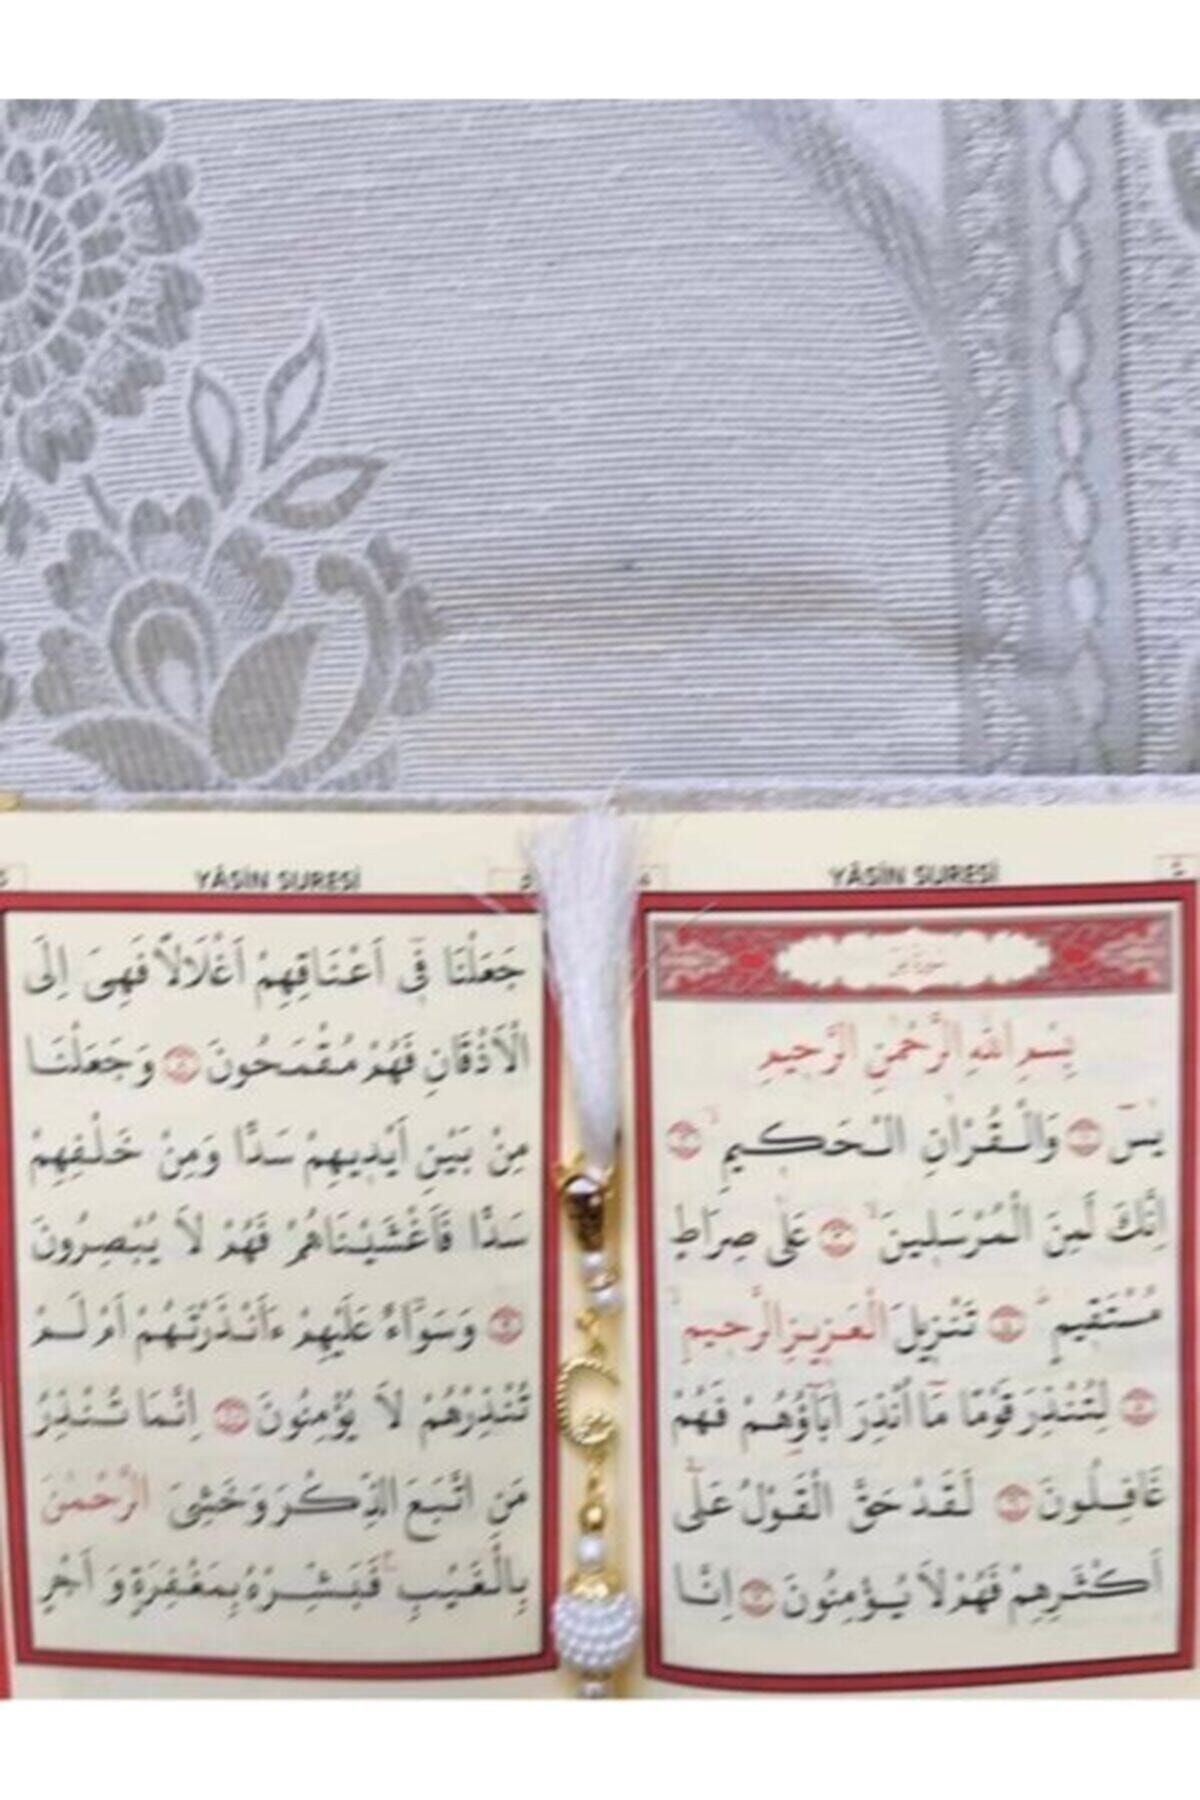 YÂSİN SURESİ
بِسْمِ اللهِ الرَّحْمٰنِ الرَّحِيمِ
يٰسٓ ۝ وَالْقُرْاٰنِ الْحَكِيمِۙ ۝
اِنَّكَ لَمِنَ الْمُرْسَلِينَۙ ۝ عَلٰى صِرَاطٍ
مُسْتَقِيمٍۜ ۝ تَنْزِيلَ الْعَزِيزِ الرَّحِيمِۙ
۝ لِتُنْذِرَ قَوْمًا مَٓا اُنْذِرَ اٰبَٓاؤُهُمْ فَهُمْ
غَافِلُونَ ۝ لَقَدْ حَقَّ الْقَوْلُ عَلٰٓى
اَكْثَرِهِمْ فَهُمْ لَا يُؤْمِنُونَ ۝ اِنَّا
YÂSİN SURESİ
جَعَلْنَا فِٓى اَعْنَاقِهِمْ اَغْلَالًا فَهِىَ اِلَى
الْاَذْقَانِ فَهُمْ مُقْمَحُونَ ۝ وَجَعَلْنَا
مِنْ بَيْنِ اَيْدِيهِمْ سَدًّا وَمِنْ خَلْفِهِمْ
سَدًّا فَاَغْشَيْنَاهُمْ فَهُمْ لَا يُبْصِرُونَ
۝ وَسَوَٓاءٌ عَلَيْهِمْ ءَاَنْذَرْتَهُمْ اَمْ لَمْ
تُنْذِرْهُمْ لَا يُؤْمِنُونَ ۝ اِنَّمَا تُنْذِرُ
مَنِ اتَّبَعَ الذِّكْرَ وَخَشِىَ الرَّحْمٰنَ
بِالْغَيْبِۚ فَبَشِّرْهُ بِمَغْفِرَةٍ وَ اَجْرٍ